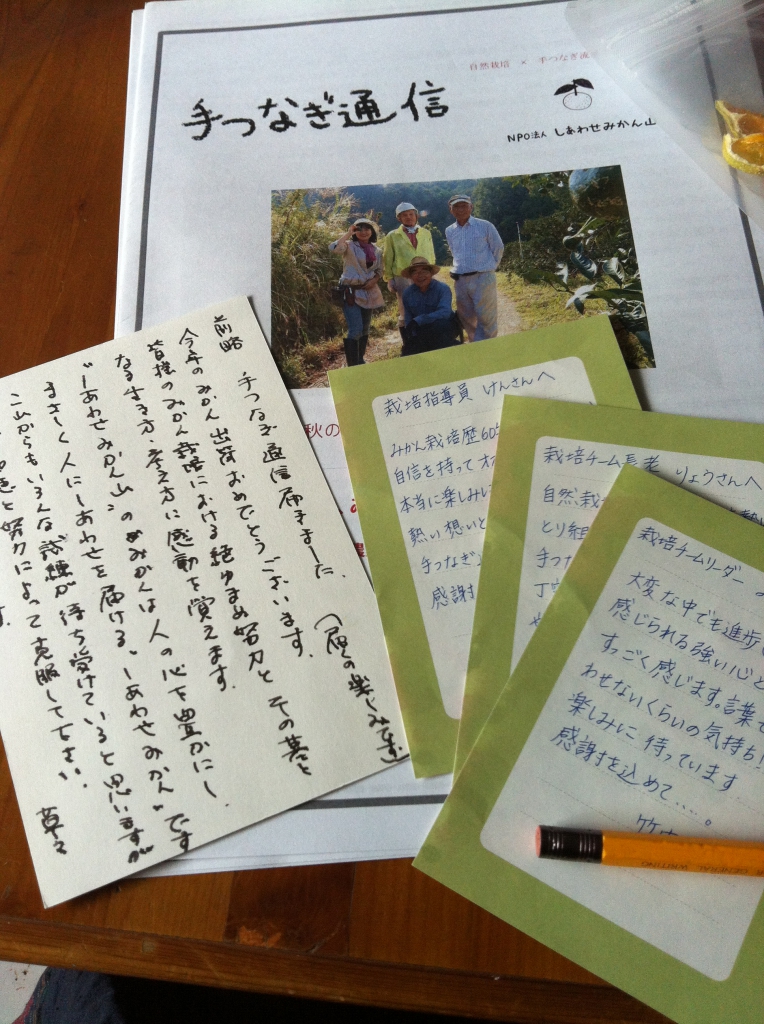 自然栽培 × 手つなぎ流
手つなぎ通信
NPO法人 しあわせみかん山
秋の
前略
手つなぎ通信届きました。(届くの楽しみです)
今年のみかん出荷おめでとうございます。
皆様のみかん栽培における絶ゆまぬ努力と その基と
なる生き方、考え方に感動を覚えます。
"しあわせみかん山"のみかんは人の心を豊かにし、
まさしく人にしあわせを届ける"しあわせみかん"です
これからもいろんな試練が待ち受けていると思いますが
と努力によって克服して下さい。
草々
栽培指導員 けんさんへ
みかん栽培歴60
自信を持って
本当に楽しみに
熱い想いと
手つなぎ
感謝
栽培チーム長老 りょうさんへ
自然栽
とり組
手つ
丁
栽培チームリーダー
大変な中でも進歩
感じられる強い心と
すっごく感じます。言葉で
わせないくらいの気持ち!
楽しみに待っています
感謝を込めて....。
竹
GENERAL WRITING